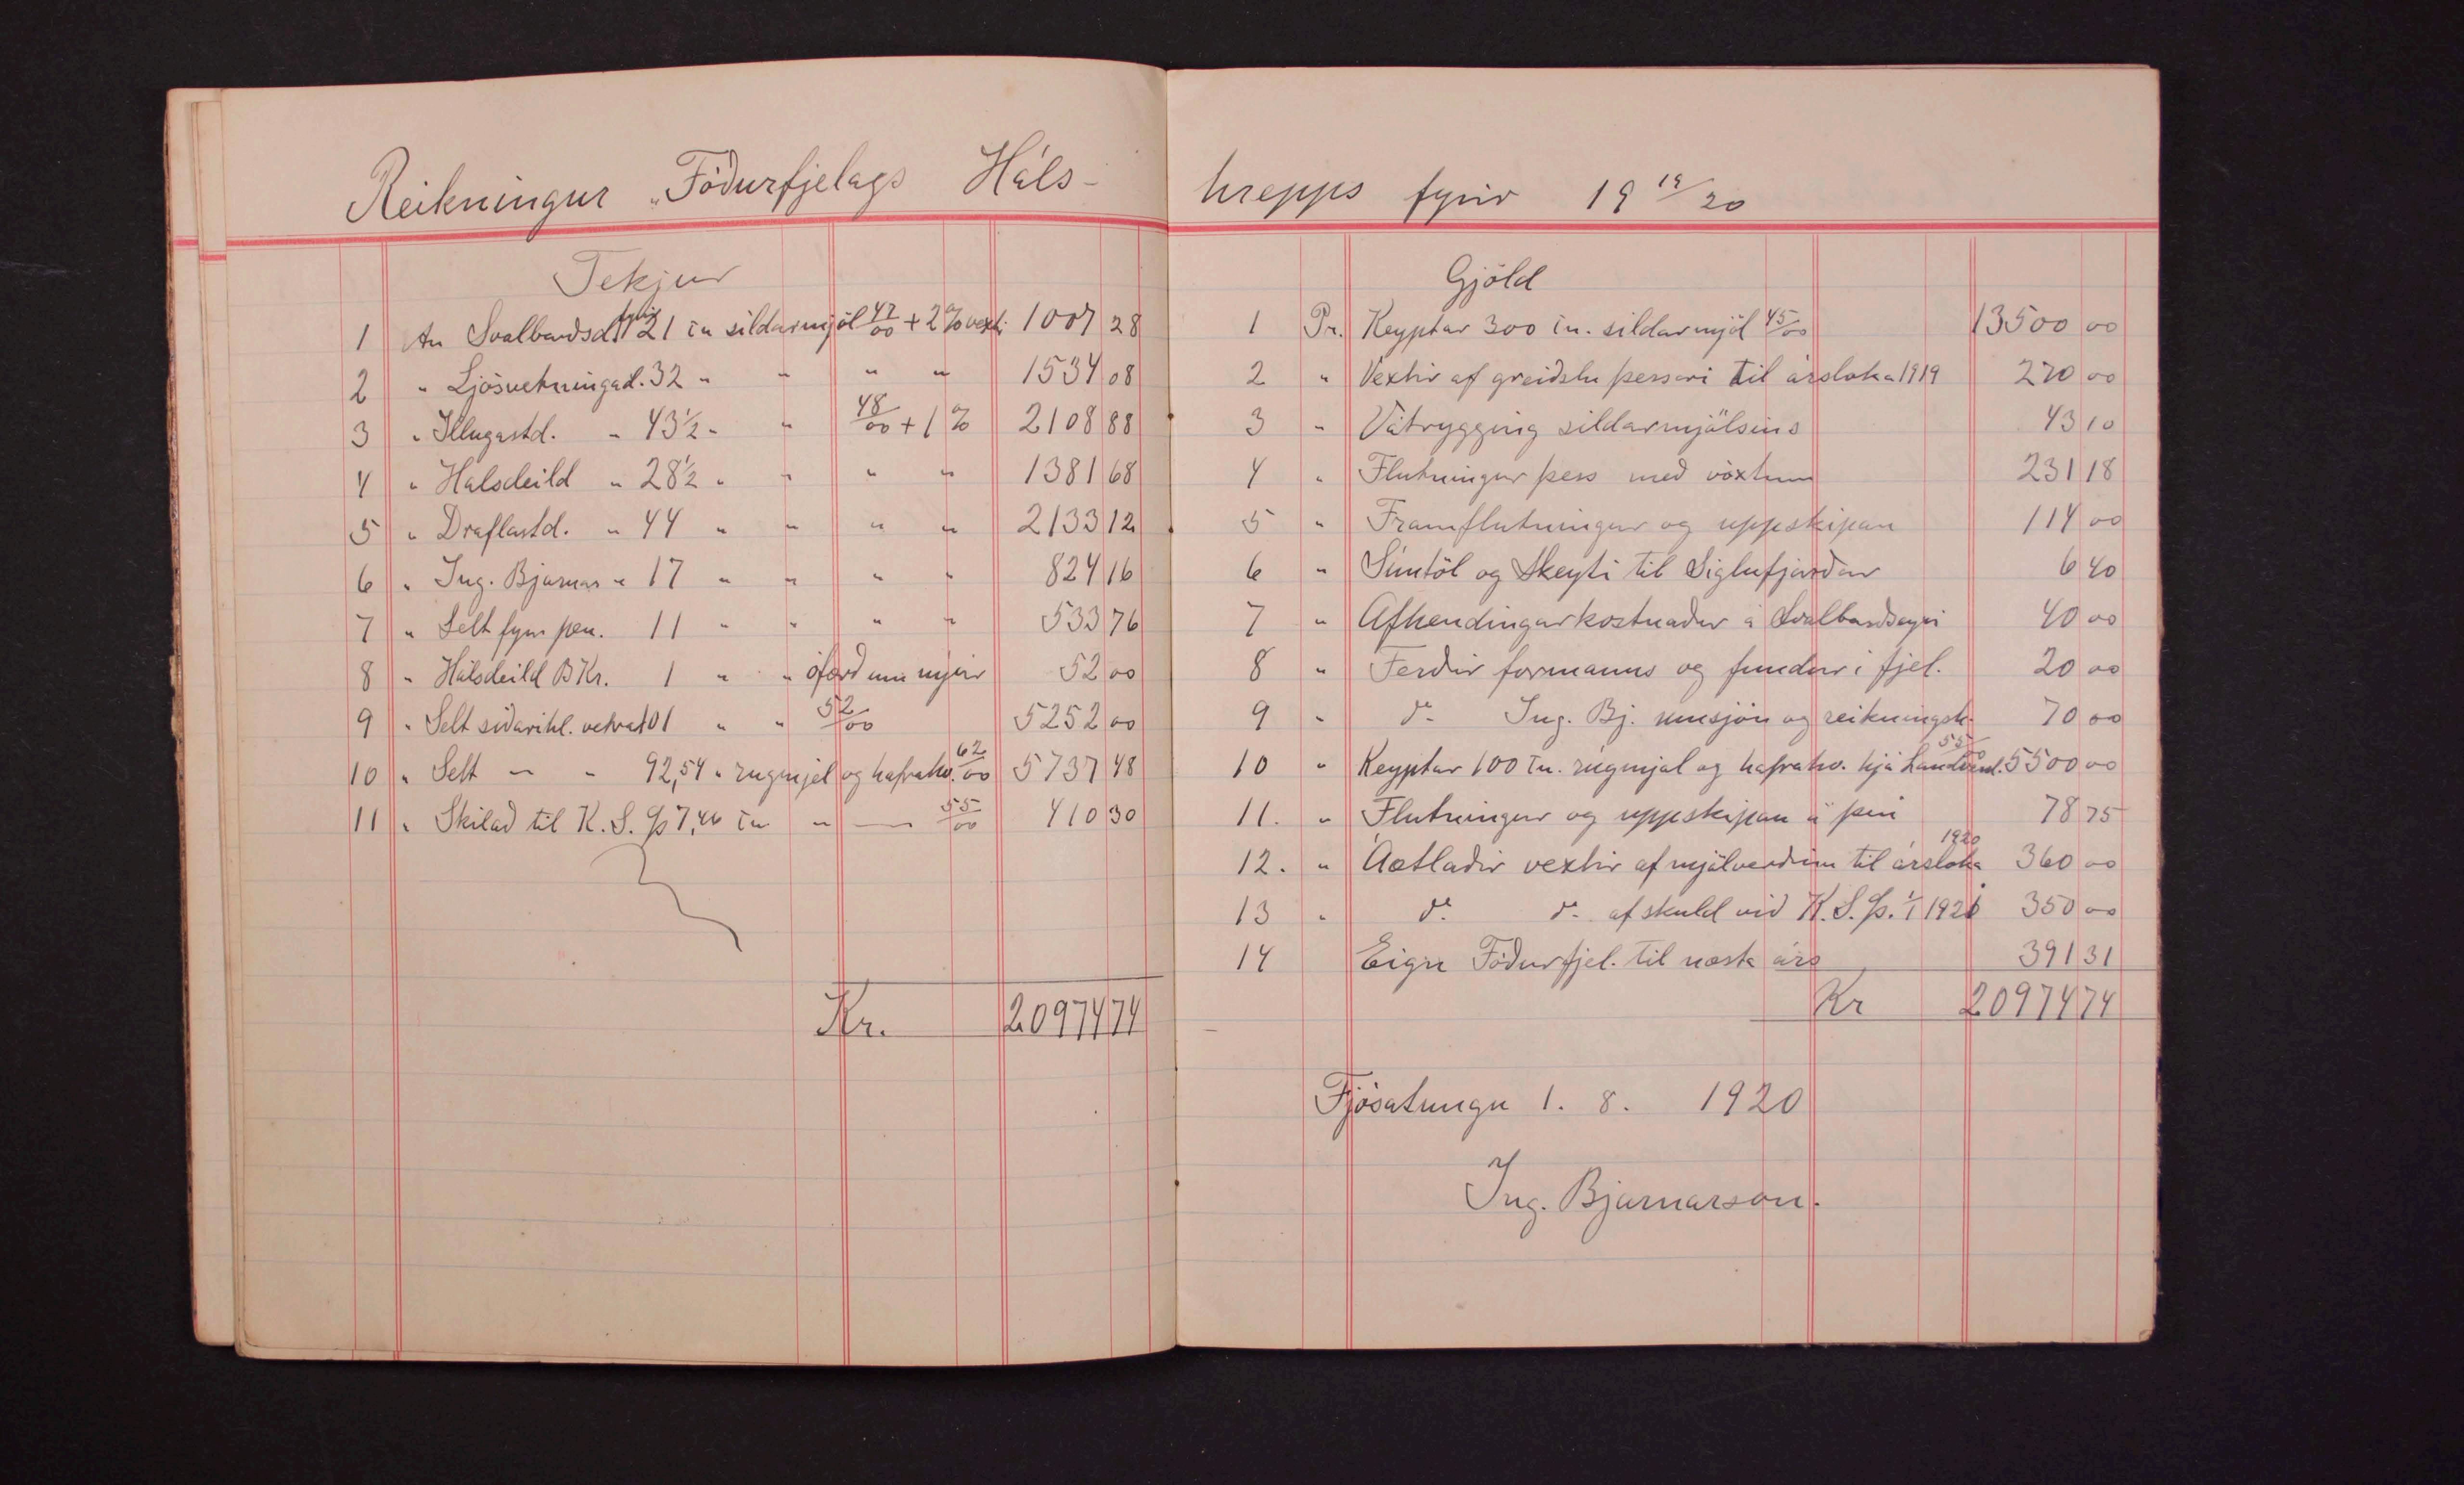 Reikningur „Fóðurfjelags Háls-
Tekjur
1 An Svalbarðsd. fyrir 21 tn síldarmjöl 47/00 + 2% vexti 1007 28
2 " Ljósvetningad. 32 " " " " 1534 08
3 " Illugastd. " 43½ " " 48/00 + 1% 2108 88
4 " Halsdeild " 28½ " " " " 1381 68
5 " Draflastd. " 44 " " " " 2133 12
6 " Ing. Bjarnar " 17 " " " " 824 16
7 " Selt fyrir pen. 11 " " " " 533 76
8 " Hálsdeild B Kr. 1 " " 52 00
9 " Selt síðarihl. vetrar 101 " " 52/00 5252 00
10 " Selt — " 92,54 " rúgmjel og hafrahv. 62/00 5737 48
11 " Skilað til K. S. Þ 7,46 tn " — 55/00 410 30
Kr. 20974 74
hrepps fyrir 19 19/20
Gjöld
1 Pr. Keyptar 300 tn. síldarmjöl 45/00 13500 00
2 " Vextir af greiðslu þessari til ársloka 1919 270 00
3 " Vátrygging síldarmjölsins 43 10
4 " Flutningur þess með vöxtum 231 18
5 " Framflutningur og uppskipan 114 00
6 " Símtöl og skeyti til Siglufjarðar 6 40
7 " Afhendingarkostnaður á Svalbarðseyri 40 00
8 " Ferðir formanns og fundur í fjel. 20 00
9 " do Ing. Bj. umsjón og reikningsh. 70 00
10 " Keyptar 100 tn. rúgmjöl og hafrahv. hjá Landsversl. 55/00 5500 00
11. " Flutningur og uppskipan á því 78 75
12. " Áætlaðir vextir af mjölverðinu til ársloka 1920 360 00
13 " do do af skuld við K. S. Þ. 1/1 1921 350 00
14 Eign Fóðurfjel. til næsta árs 391 31
Kr 20974 74
Fjósatungu 1. 8. 1920
Ing. Bjarnarson.